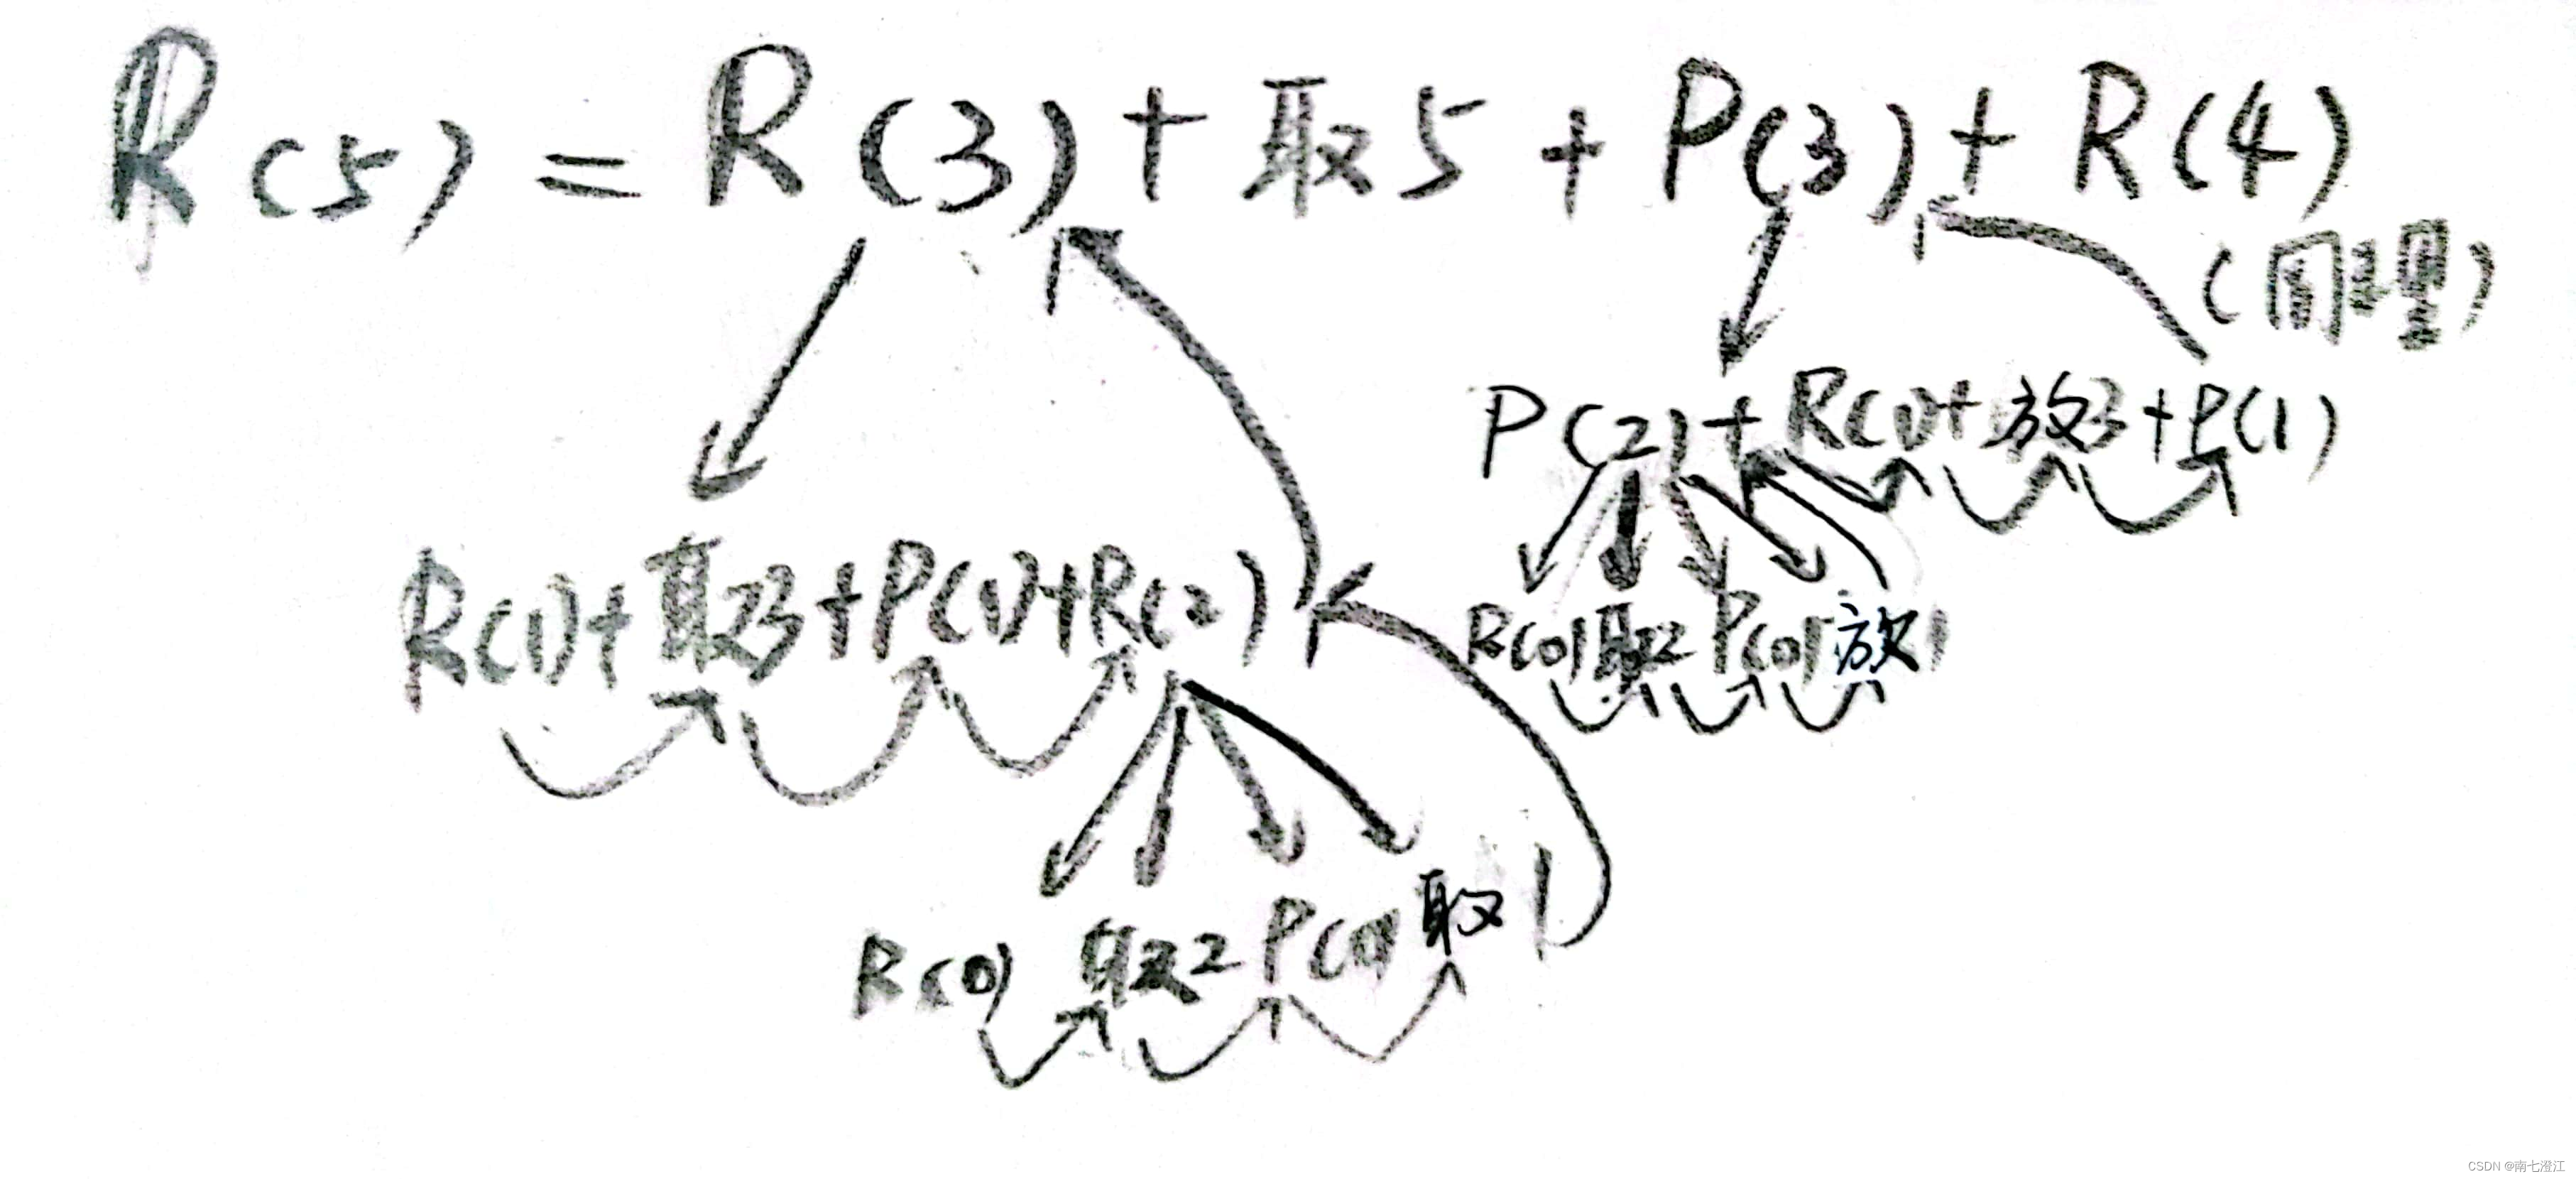 R(5) = R(3) + 取5 + P(3) + R(4)
(同理)
P(2) + R(1) + 放3 + P(1)
R(1) + 取3 + P(1) + R(2)
R(0) 取2 P(0) 放1
R(0) 取2 P(0) 取1
CSDN @南七澄江